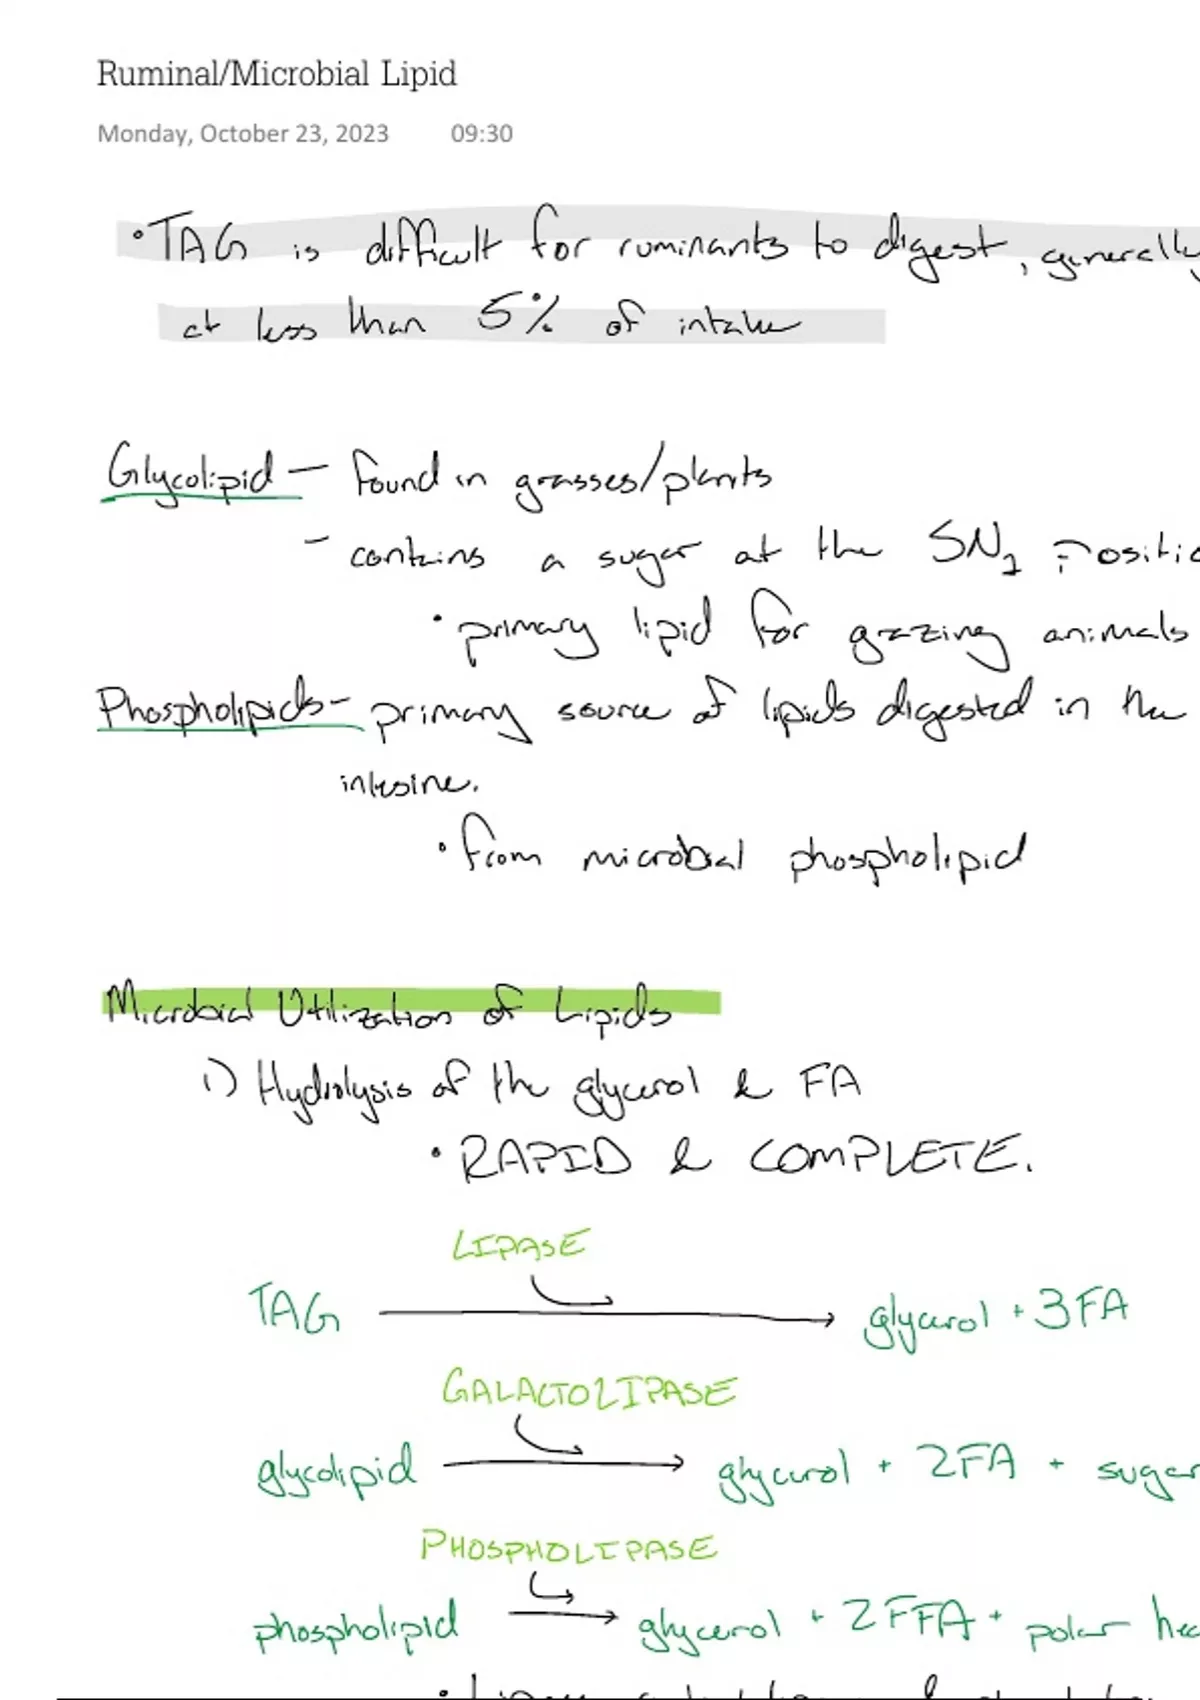 Ruminal/Microbial Lipid
Monday, October 23, 2023 09:30
• TAG is difficult for ruminants to digest, generally
at less than 5% of intake
Glycolipid — found in grasses/plants
- contains a sugar at the SN₂ positio
• primary lipid for grazing animals
Phospholipids - primary source of lipids digested in the
intesine.
• From microbial phospholipid
Microbial Utilization of Lipids
1) Hydrolysis of the glycerol & FA
• RAPID & COMPLETE.
LIPASE
TAG → glycerol + 3FA
GALACTOLIPASE
glycolipid → glycerol + 2FA + sugar
PHOSPHOLIPASE
phospholipid → glycerol + 2FFA + polar hea